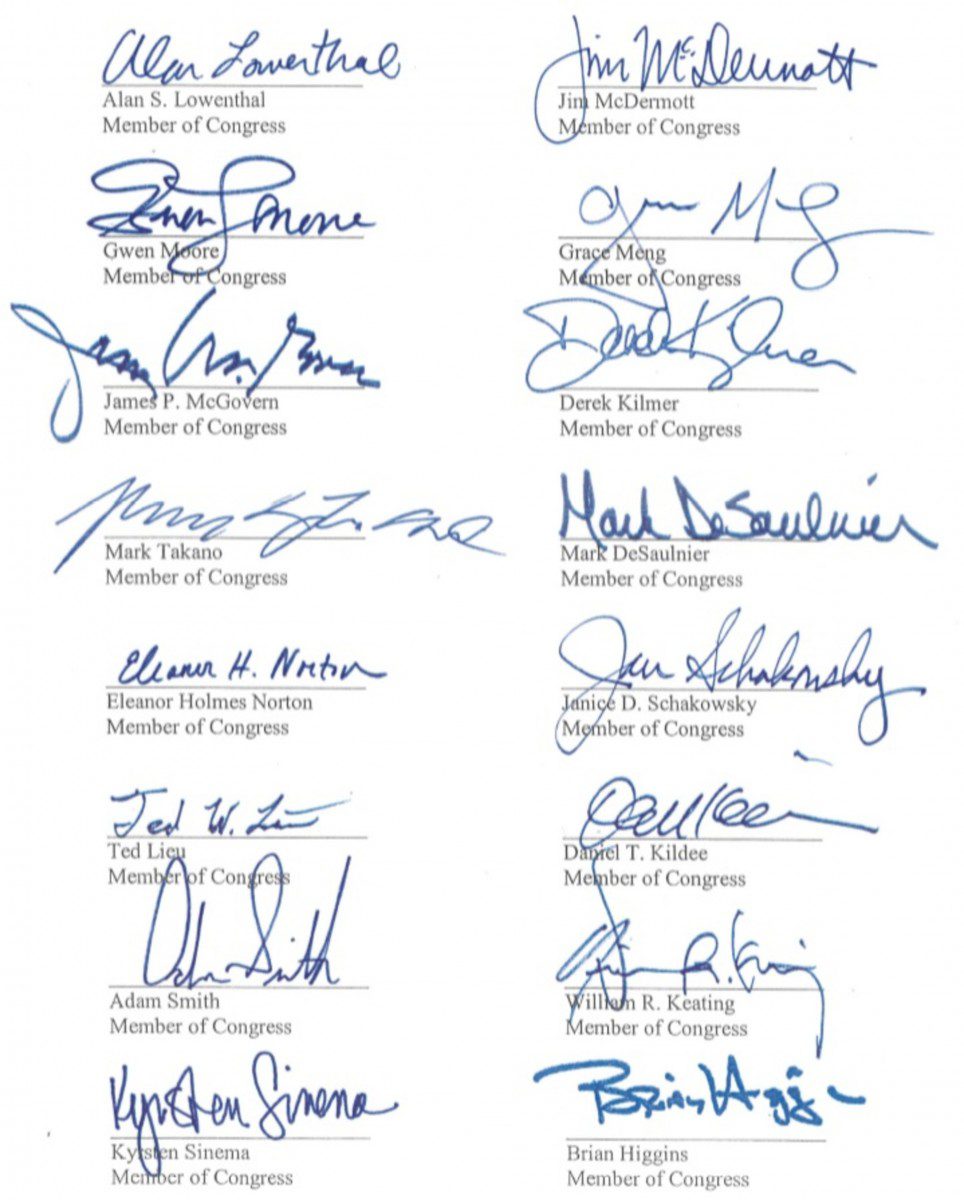 Alan Lowenthal
Alan S. Lowenthal
Member of Congress
Jim McDermott
Jim McDermott
Member of Congress
Gwen Moore
Gwen Moore
Member of Congress
Grace Meng
Member of Congress
James P. McGovern
Member of Congress
Derek Kilmer
Derek Kilmer
Member of Congress
Mark Takano
Member of Congress
Mark DeSaulnier
Mark DeSaulnier
Member of Congress
Eleanor H. Norton
Eleanor Holmes Norton
Member of Congress
Jan Schakowsky
Janice D. Schakowsky
Member of Congress
Ted W. Lieu
Ted Lieu
Member of Congress
Daniel T. Kildee
Member of Congress
Adam Smith
Adam Smith
Member of Congress
William R. Keating
Member of Congress
Kyrsten Sinema
Kyrsten Sinema
Member of Congress
Brian Higgins
Brian Higgins
Member of Congress